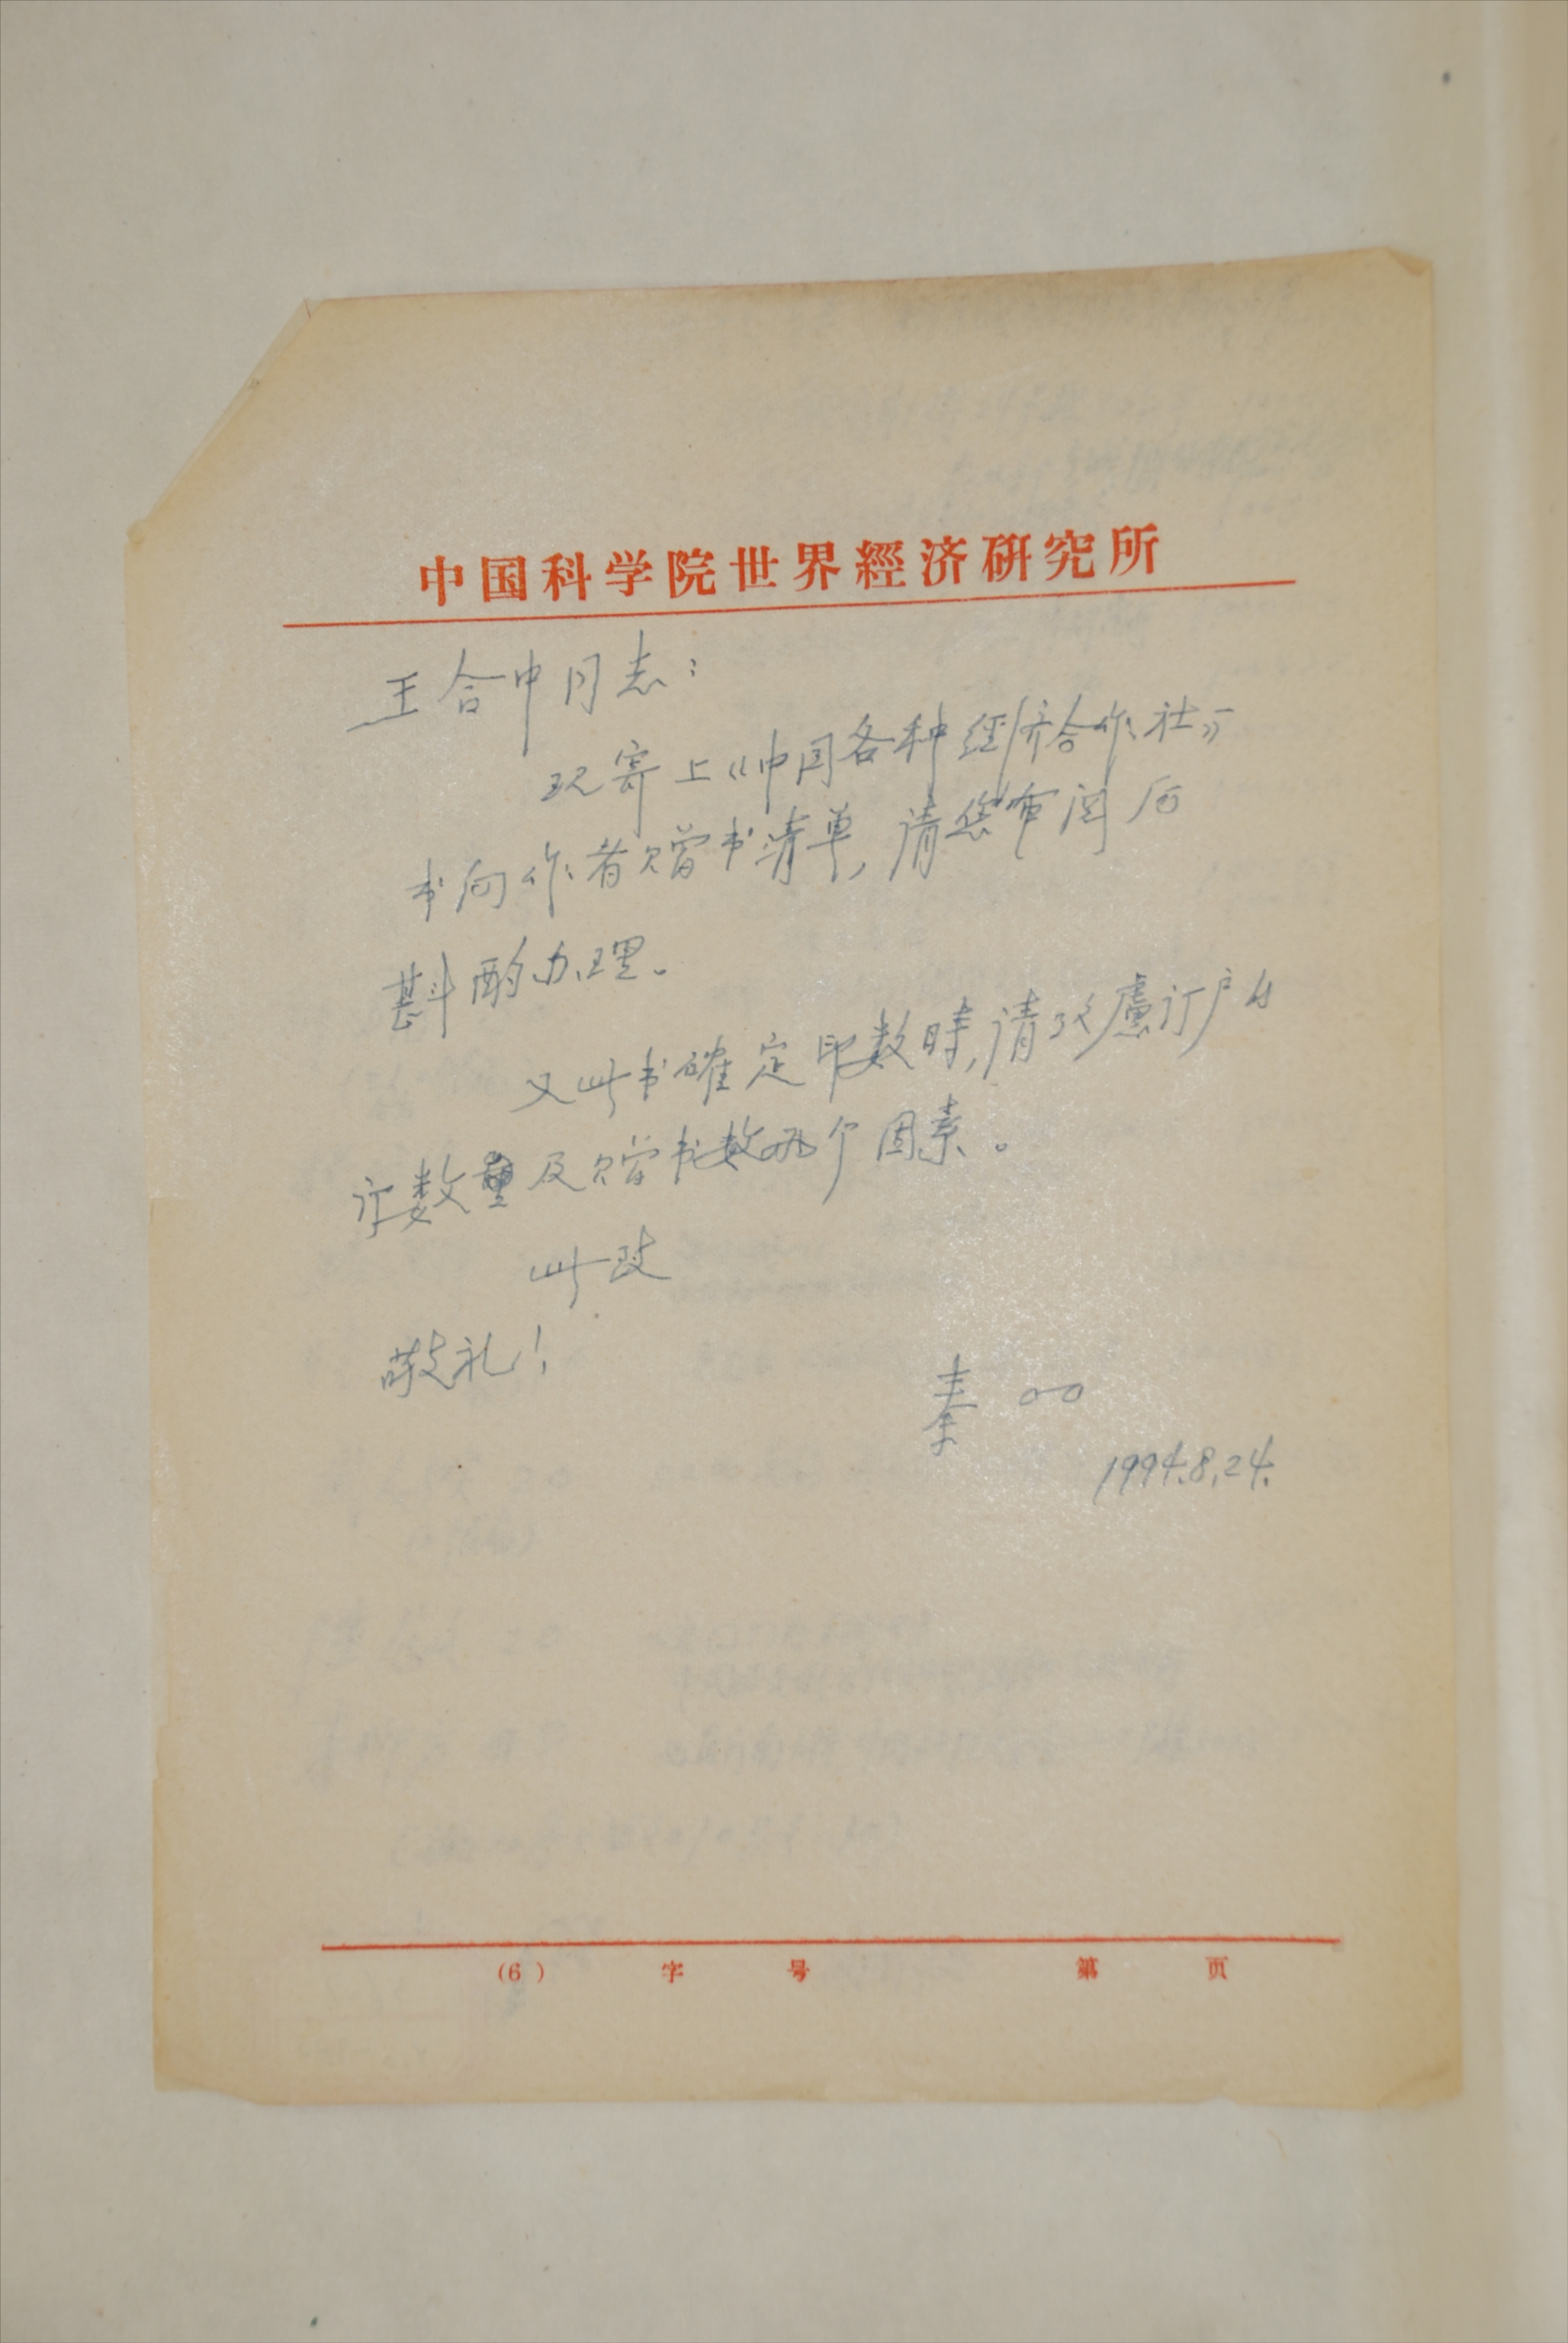 中国科学院世界經济研究所
王合中同志：
现寄上《中国各种经济合作社》
书向作者赠书清单，请您审阅后
斟酌办理。
又此书確定印数時，请攷慮订户
订数量及赠书数兩个因素。
此致
敬礼！
秦
1994.8.24.
(6) 字 号 第 页